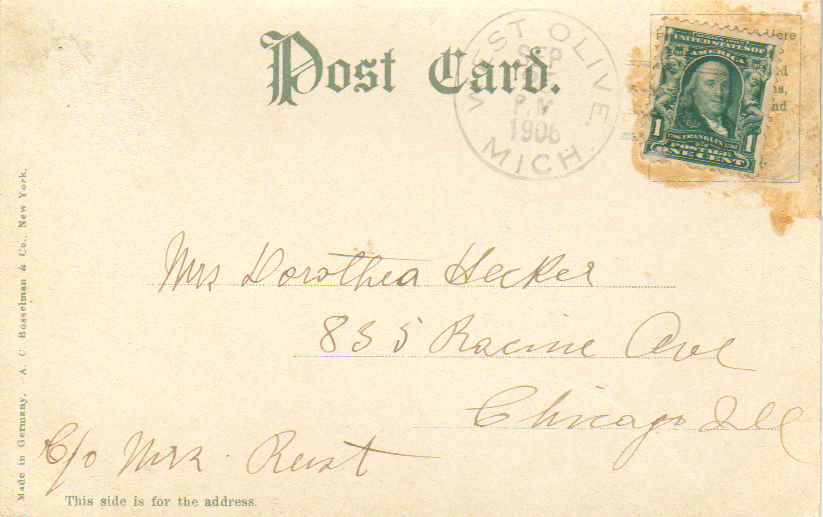 Post Card.
WEST OLIVE
SEP
P.M
1906
MICH.
ere
d
s,
nd
UNITED STATES OF
AMERICA
1 FRANKLIN 1
POSTAGE
ONE CENT
Mrs Dorothea Hecker
835 Racine Ave
Chicago Ill
C/o Mrs. Rust
This side is for the address.
Made in Germany. - A. C. Bosselman & Co., New York.